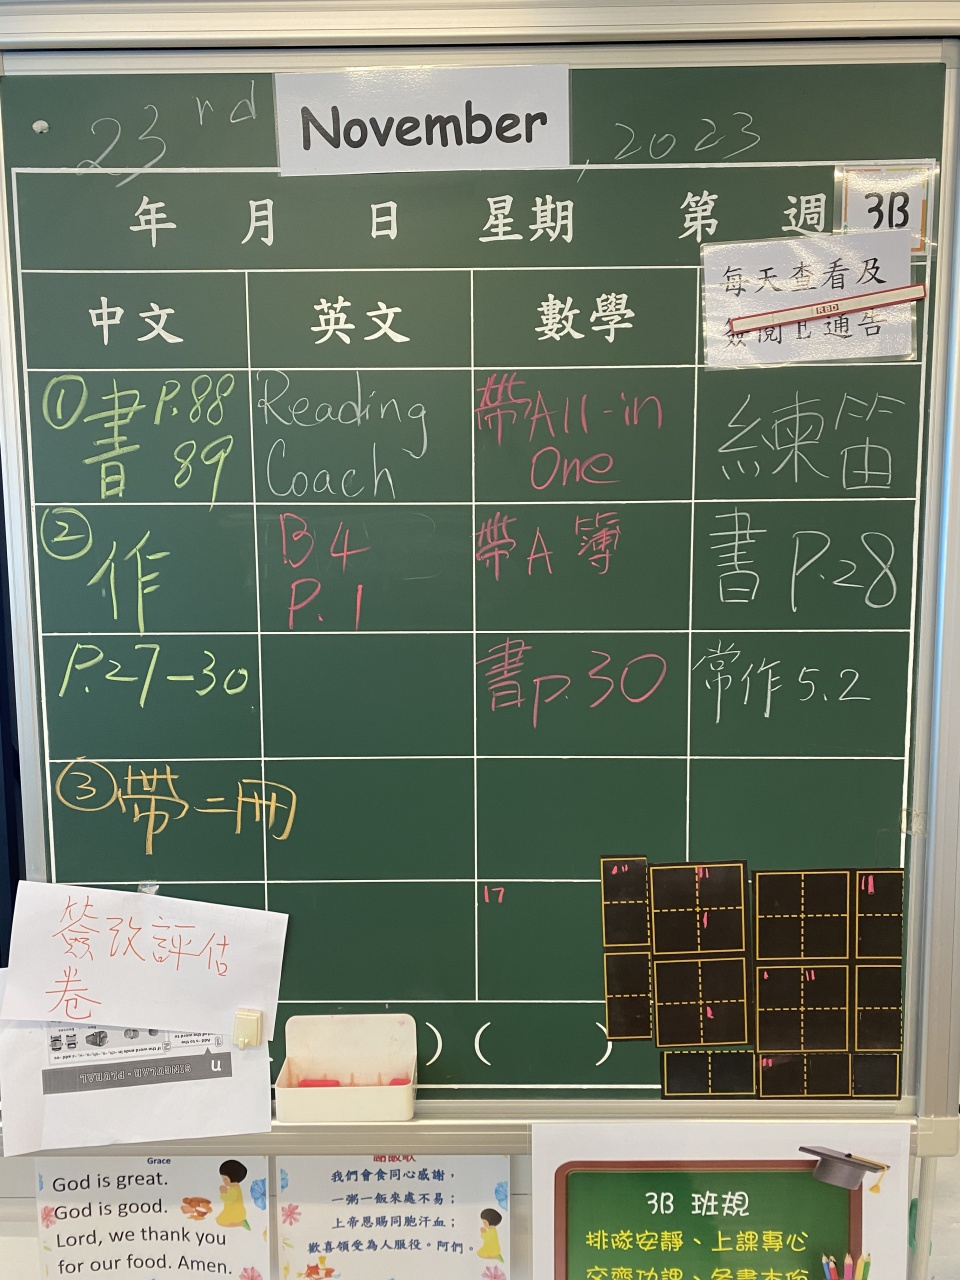 23rd November, 2023
年 月 日 星期 第 週 3B
每天查看及
簽閱E通告
中文 英文 數學
① 書 P.88
89
Reading
Coach
帶All-in
One
練笛
②
作
B4
P.1
帶A簿
書 P.28
P.27-30
書p.30
常作5.2
③帶二冊
17
簽改評估
卷
( )
SINGULAR - PLURAL
Grace
God is great.
God is good.
Lord, we thank you
for our food. Amen.
謝飯歌
我們會食同心感謝，
一粥一飯來處不易；
上帝恩賜同胞汗血；
歡喜領受為人服役。阿們。
3B 班規
排隊安靜、上課專心